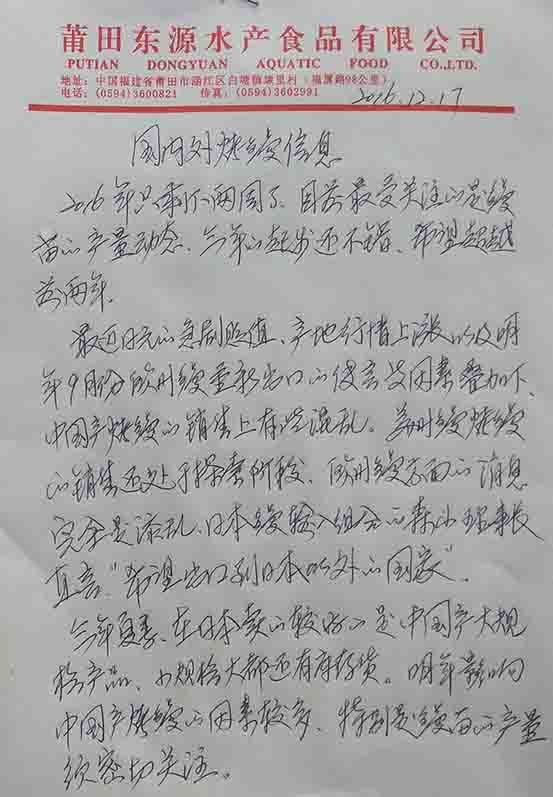 莆田东源水产食品有限公司
PUTIAN DONGYUAN AQUATIC FOOD CO.,LTD.
地址：中国福建省莆田市涵江区白塘镇埭里村（福厦路98公里）
电话：(0594)3600821 传真：(0594)3602991
2016.12.17
国内外烤鳗信息
2016年只剩下两周了，目前最受关注的是鳗
苗的产量动态，今年的起步还不错，希望超越
前两年。
最近日元的急剧贬值、产地行情上涨以及明
年9月份欧洲鳗重新出口的传言等因素叠加下，
中国产烤鳗的销售上有些混乱。美洲鳗烤鳗
的销售还处于探索阶段，欧洲鳗方面的消息
完全是添乱，日本鳗输入组合的森山理事长
直言“希望出口到日本以外的国家”。
今年夏季，在日本卖的较好的是中国产大规
格产品，小规格大部还有库存货。明年影响
中国产烤鳗的因素较多，特别是鳗苗的产量
须密切关注。